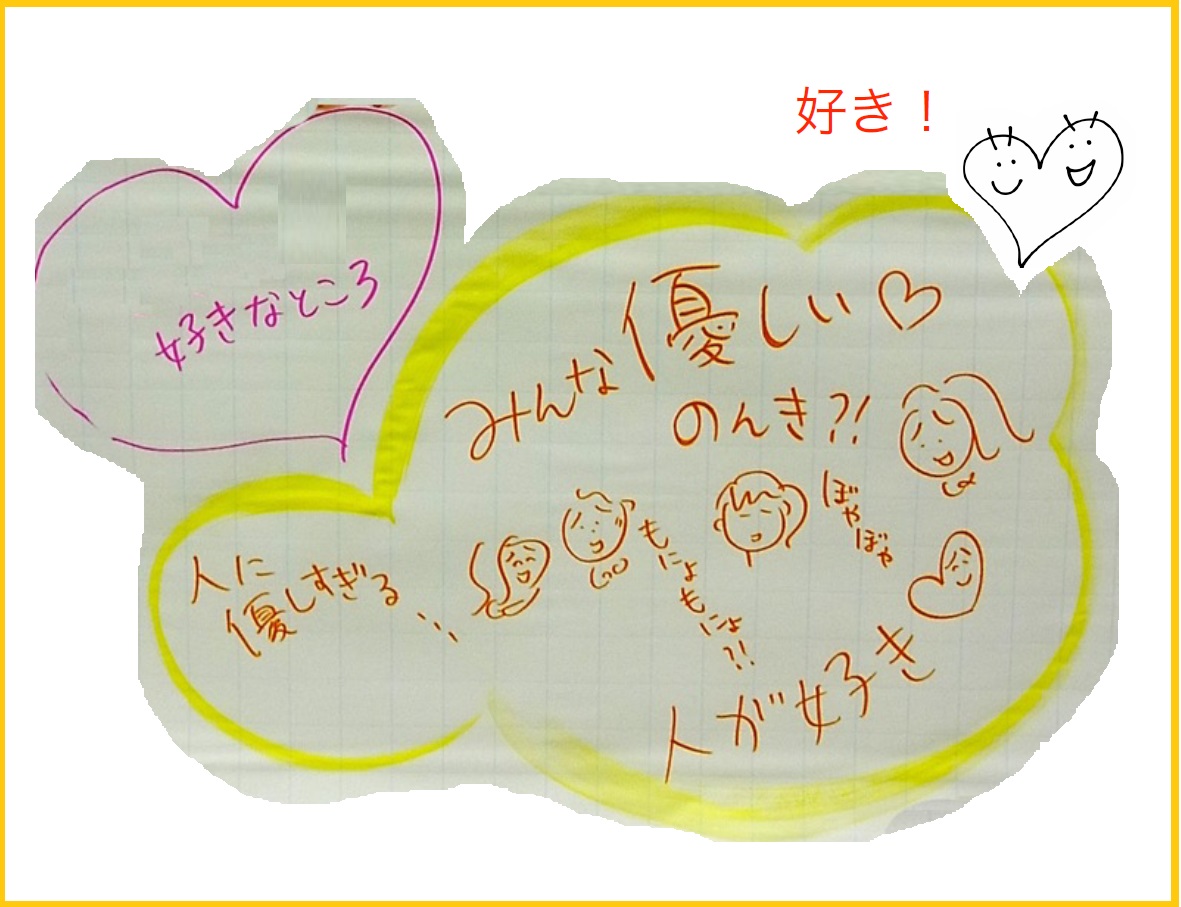 好き！
好きなところ
みんな優しい♡
のんき?!
ぼやぼや
もにょもにょ?!
人に
優しすぎる…
人が好き